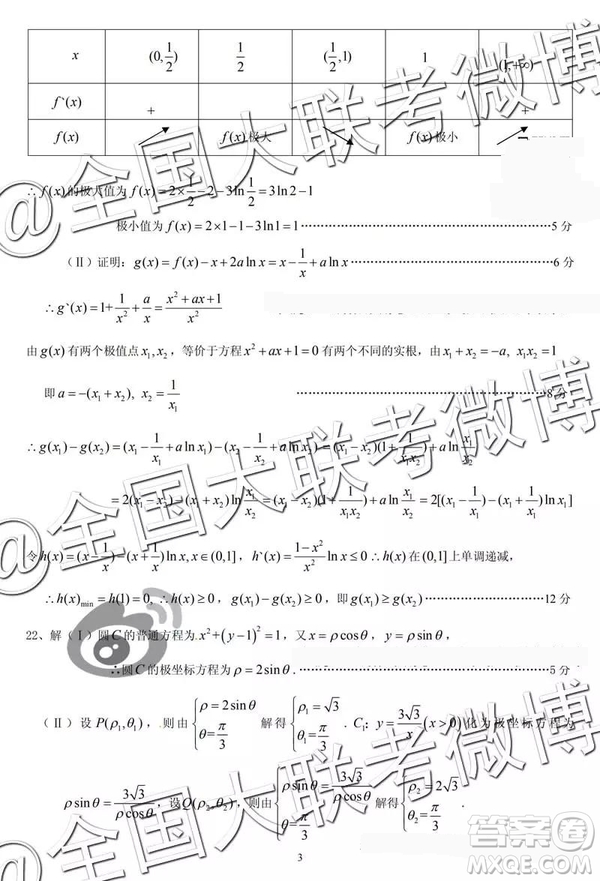 x (0,1/2) 1/2 (1/2,1) 1 (1,+∞)
f`(x) + +
f(x) f(x)极大 f(x)极小
∴ f(x)的极大值为 f(x)=2×1/2-2-3ln1/2=3ln2-1
极小值为 f(x)=2×1-1-3ln1=1 ⋯⋯5 分
(Ⅱ)证明:g(x)=f(x)-x+2a ln x=x-1/x+a ln x ⋯⋯6 分
∴g`(x)=1+1/x²+a/x=(x²+ax+1)/x²
由 g(x) 有两个极值点 x₁,x₂,等价于方程 x²+ax+1=0 有两个不同的实根,由 x₁+x₂=-a, x₁x₂=1
即 a=-(x₁+x₂), x₂=1/x₁ ⋯⋯8 分
∴g(x₁)-g(x₂)=(x₁-1/x₁+a ln x₁)-(x₂-1/x₂+a ln x₂)=(x₁-x₂)(1+1/(x₁x₂))+a ln x₁/x₂
=2(x₁-x₂)-(x₁+x₂)ln x₁/x₂=(x₁-x₂)(1+1/(x₁x₂))+a ln x₁/x₂=2[(x₁-1/x₁)-(x₁+1/x₁)ln x₁]
令h(x)=(x-1/x)-(x+1/x)ln x,x∈(0,1], h`(x)=(1-x²)/x² ln x≤0 ∴h(x)在(0,1]上单调递减,
∴h(x)min=h(1)=0, ∴h(x)≥0, g(x₁)-g(x₂)≥0, 即 g(x₁)≥g(x₂) ⋯⋯12 分
22、解(Ⅰ)圆C的普通方程为 x²+(y-1)²=1,又 x=ρcosθ, y=ρsinθ,
∴圆C的极坐标方程为 ρ=2sinθ. ⋯⋯5 分
(Ⅱ)设 P(ρ₁,θ₁),则由 {ρ=2sinθ θ=π/3 解得 {ρ₁=√3 θ₁=π/3 . C₁: y=3√3/x (x>0) 化为极坐标方程为
ρsinθ=3√3/(ρcosθ),设Q(ρ₂,θ₂),则由 {ρsinθ=3√3/(ρcosθ) θ=π/3 解得 {ρ₂=2√3 θ₂=π/3 .
3
@全国大联考微博
@全国大联考微博
答案圈
MXQE.COM